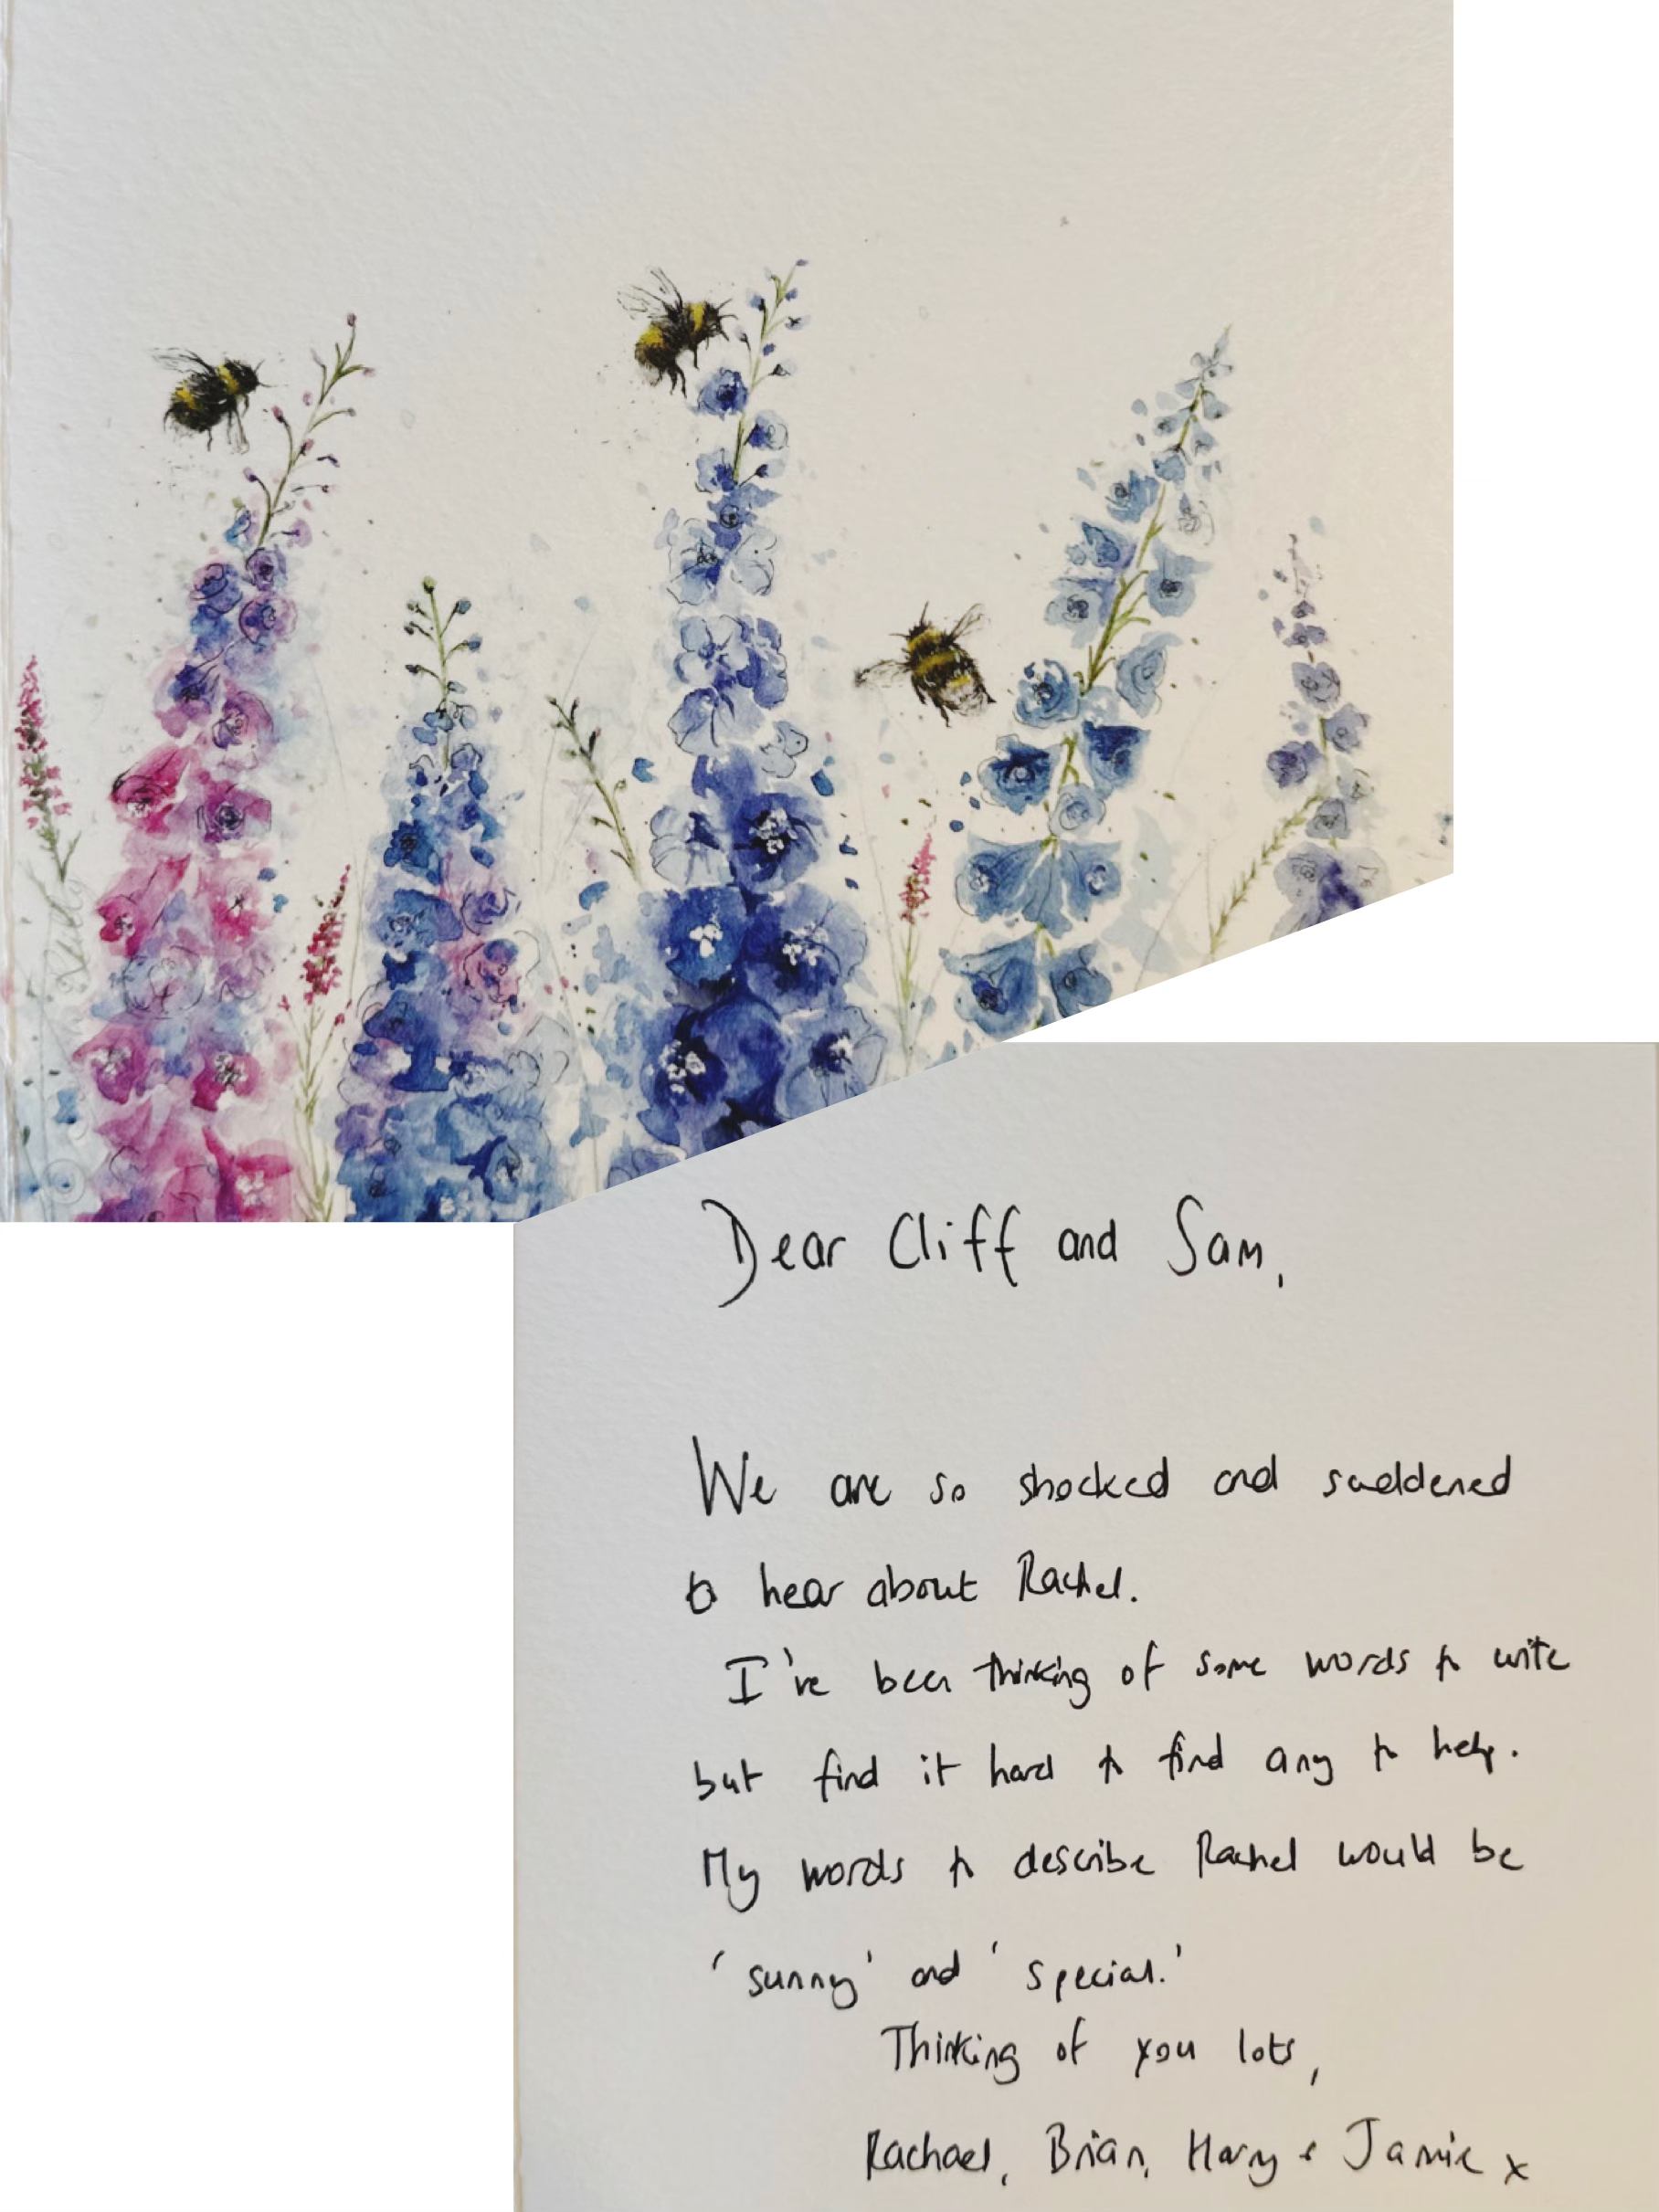 Dear Cliff and Sam,
We are so shocked and saddened
to hear about Rachel.
I've been thinking of some words to write
but find it hard to find any to help.
My words to describe Rachel would be
'sunny' and 'special.'
Thinking of you lots,
Rachael, Brian, Harry & Jamie x